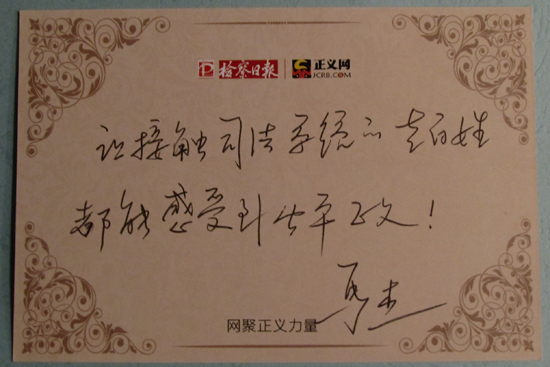 检察日报 正义网
JCRB.COM
让接触司法系统的老百姓
都能感受到公平正义！
网聚正义力量